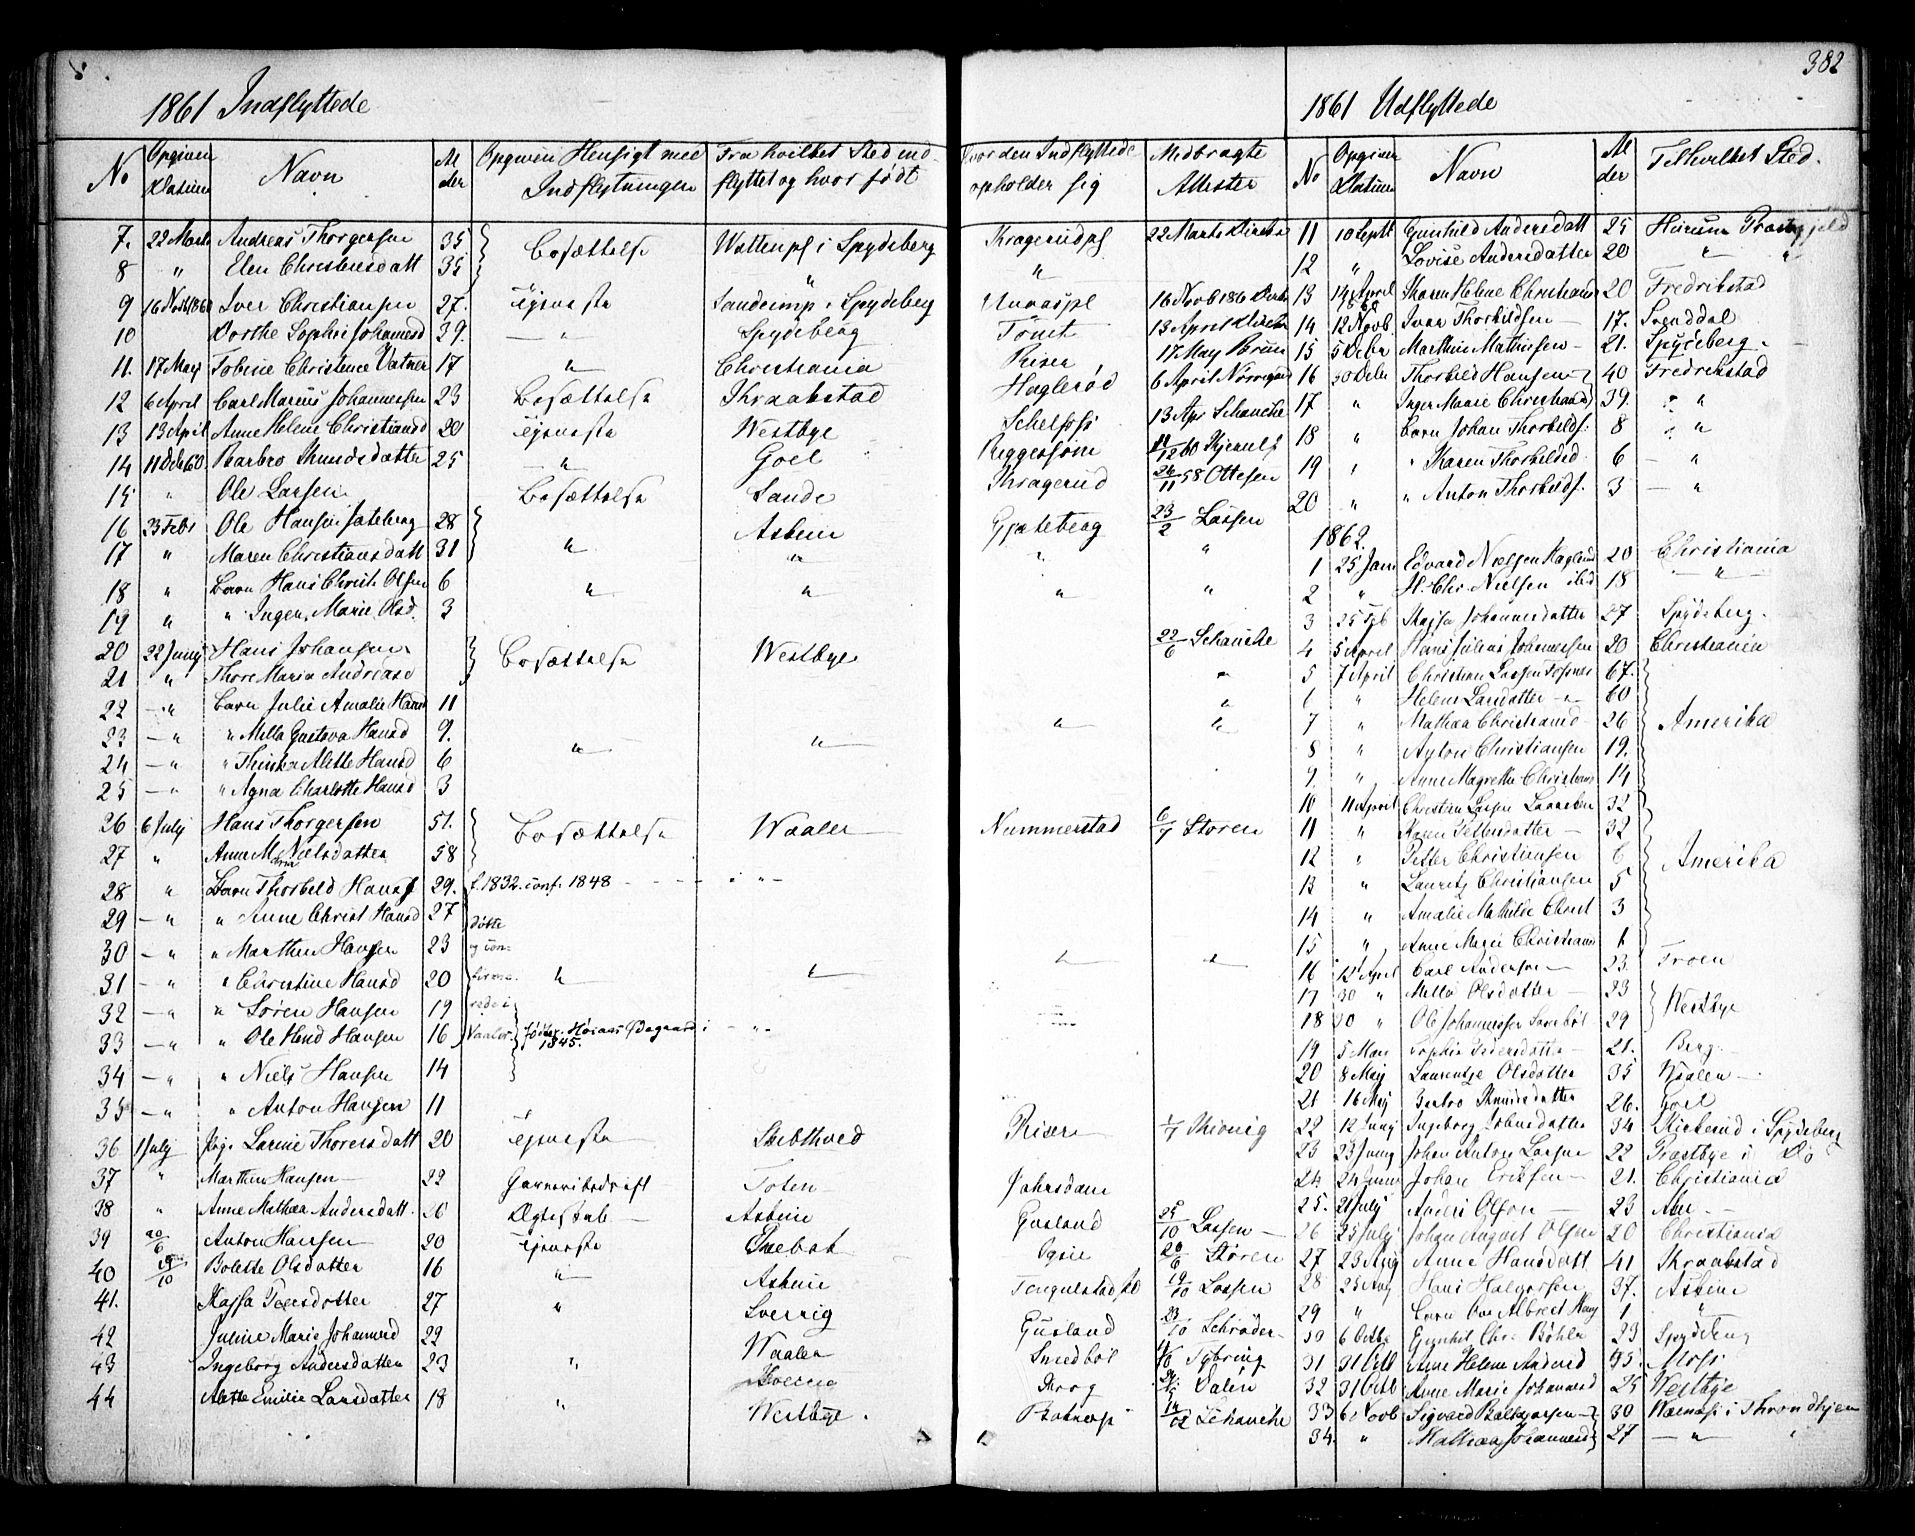 382
1861 Indflyttede
No Opgiven Datum Navn Alder Opgiven Hensigt med Indflytningen Fra hvilket Sted indflyttet og hvor født Hvor den Indflyttede opholder sig Medbragte Attester
7. 22 Marts Andreas Thorgersen 35 Bosættelse i Spydeberg Kragerudpl 22 Marts
8 " Elen Christensdatt 35 " "
9 16 Novb 1860 Iver Christiansen 27. Tjeneste Spydeberg 16 Novb 186
10 Dorthe Sophie Johannesd 39. — " — Spydeberg Tomt 13 April
11. 17 May Tobine Christine 17 " Christiania Riser 17 May
12 6 April Carl Marius Johannessen 23 Bosættelse Kraakstad Haglerød 6 April
13 13 April Anne Helene Christiansd 20 Tjeneste Westbye 13 Apr Schancke
14 11 Dcb 60 Barbro Knudsdatte 25 — " Goel 11/12 60
15 " Ole Larsen Bosættelse Sande Kragerud 26/11 58 Ottesen
16 23 Febr Ole Hansen 28 Askim 23/2 Lassen
17 " Maren Christiansdatt 31 " " " "
18 " Barn Hans Christ. Olsen 6 " " " "
19 " " Inger Marie Olsd. 3
20 22 Juny Hans Johansen Bosættelse Westbye 22/6 Schancke
21 " Thore Maria Andreasd "
22 — " Barn Julie Amalie Hansd 11 "
23 — " " Mella Gustava Hansd 9. " " " "
24 — " " Thinka Alette Hansd 6
25 — " " Agna Charlotte Hansd 3
26 6 July Hans Thorgersen 51. Bosættelse Waaler Nummerstad 6/7 Støren
27 " Anne Maria Nielsdatter 58
28 " Barn Thorbild Hans. 29. f. 1832. conf. 1848 - - - - " -
29 — " " Anne Christ Hansd 27 døtte
30 — " " Marthin Hansen 23 og con-
31 — " " Christine Hansd 20 firme- " " " "
32 — " " Søren Hansen 19 rede i
33 — " " Ole Hansen 16 Vaaler. Ødegaard i 1845. - " -
34 — " " Niels Hansen 14
35 — " " Anton Hansen 11
36 1 July Lorine Thoresdatt 20 Tjeneste Skibthved Riser 1/7
37 " Marthin Hansen — 22 Toten
38 " Anne Mathea Andersdatt. 26 Ægteskab — Askim Gusland 25/10 Lassen —
39 20/6 Anton Hansen — 20 Tjeneste 20/6 Støren
40 19/10 Bolette Olsdatter 16 " Askim 19/10 Lassen
41. Kajsa 27 " Sverrig Gusland 23/10 Schrøder
42 Juline Marie Johannesd 22 Waaler Smedbøl Tybring
43 Ingeborg Andersdatter 23 " Krog Dalen
44 Alette Emilie Larsdatter 18 " Westbye. Schancke
1861 Udflyttede
No Opgiven Datum Navn Alder Til hvilket Sted.
11 10 Septb Gunhild Andersdatt 25 Hurum
12 " Lovise Andersdatter 20 — " — "
13 14 April 60 Karen Helene Christians 20 Fredrikstad
14 12 Novb Iver Thorbildsen 17.
15 5 Dcbr Marthin Mathisen — 21. Spydeberg.
16 30 Dcbr Thorbild Hansen — 40 Fredrikstad
17 " Inger Marie Christiansd 39. " "
18 " Barn Johan Thorbilds. 8 " "
19 " " Karen Thorbildsd. 6 — "
20 " " Anton Thorbilds. 3 — "
1862.
1 25 Jan Edvard Nielsen Haglund 20 Christiania
2 " H. Chr. Nielsen ibd 18 — " —
3 25 Feb Kajsa Johannesdatter 27 Spydeberg.
4 5 April Hans Julius Johannessen 20 Christiania
5 7 April Christian Larsen 67.
6 " Helene Larsdatter — " — 60
7 " Mathea Christiansd — 26 Amerika
8 " Anton Christiansen 19.
9. " Anne Magrethe Christians 14
10 11 April Christian Larsen 32
11 " Karen — 32
12 " Petter Christiansen 6 Amerika
13 " Lauritz Christiansen 5
14 " Amalie Mathilde Christ 3
15 " Anne Marie Christians 1
16 12 April Carl Andersen — 23. Troen
17 30 " Mella Olsdatter — 23 Westbye
18 30 " Ole Johannessen 29
19 5 May Sophie — 21. Berg.
20 8 May Laurentze Olsdatter 35 Waaler —
21 16 May Barbro Knudsdatter 26. Goel
22 12 Juny Ingeborg 34 i Spydeberg
23 23 Juny Johan Anton Larsen 22 Græstbye i Do
24 24 Juny Johan Eriksen — 21. Christiania
25. 21 July Andr. Olsen — 23
26 25 July Johan August Olsen 20 Christiania
27 23 Aug Anne Hansdatt 41 Kraakstad
28 25 Aug Hans Halvorsen 37. Askim
29 " Barn Ove Albret 1 "
30 6 Octb Chr. Bøhler 23 Spydeberg
31 31 Octb Anne Helene Andersd Moss
32 31 Octb Anne Marie Johannesd 25 Westbye
33 6 Novb Sigvard — 30 i Throndhjem
34. " Mathea Johannesd 27 — " —